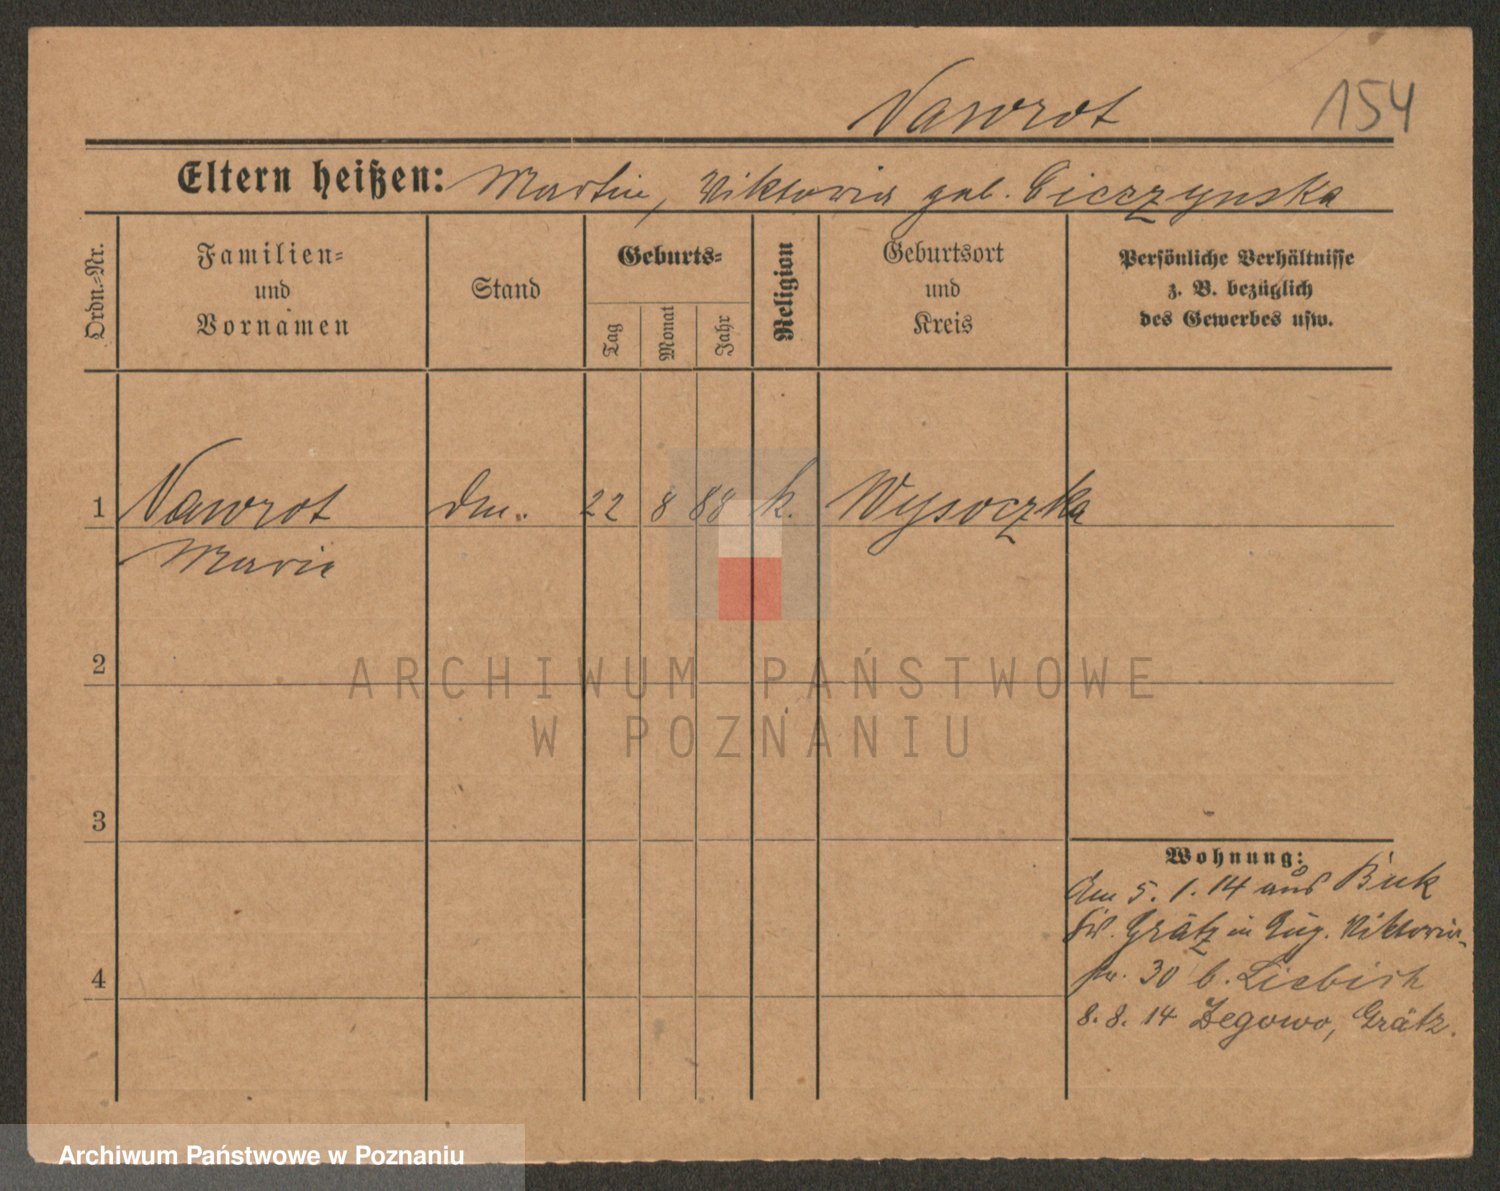 Nawrot 154
Eltern heißen: Martin, Viktoria geb. Ciczynska
Ordn.-Nr.
Familien-
und
Vornamen
Stand
Geburts-
Tag
Monat
Jahr
Religion
Geburtsort
und
Kreis
Persönliche Verhältnisse
z. B. bezüglich
des Gewerbes usw.
1 Nawrot dm. 22 8 88 k. Wysoczka
Marie
2
3
4
Wohnung:
Am 5. 1. 14 aus Buk
Grätz in Zug. Viktoria-
str. 30 b. Liebich
8. 8. 14 Zegowo, Grätz.
ARCHIWUM PAŃSTWOWE
W POZNANIU
Archiwum Państwowe w Poznaniu